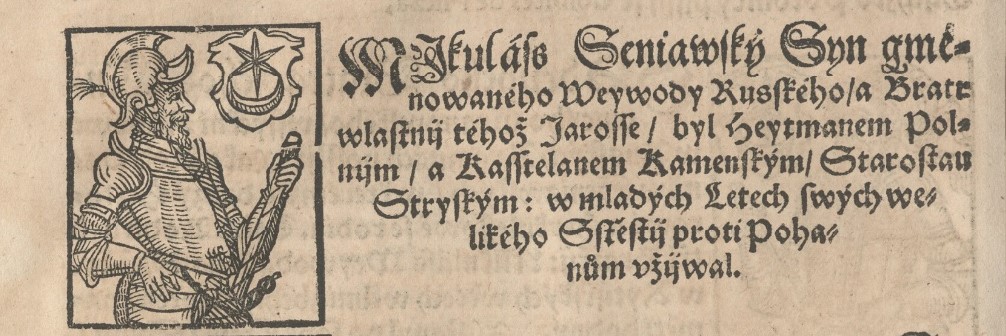 MJkuláss Seniawský Syn gme-
nowaného Weywody Rusského/ a Bratr
wlastnij téhož Jarosse/ byl Heytmanem Pol-
nijm/ a Kasstelanem Kamenským/ Starostau
Stryským: w mladých Letech swých we-
likého Sstěstij proti Poha-
nům vžijwal.